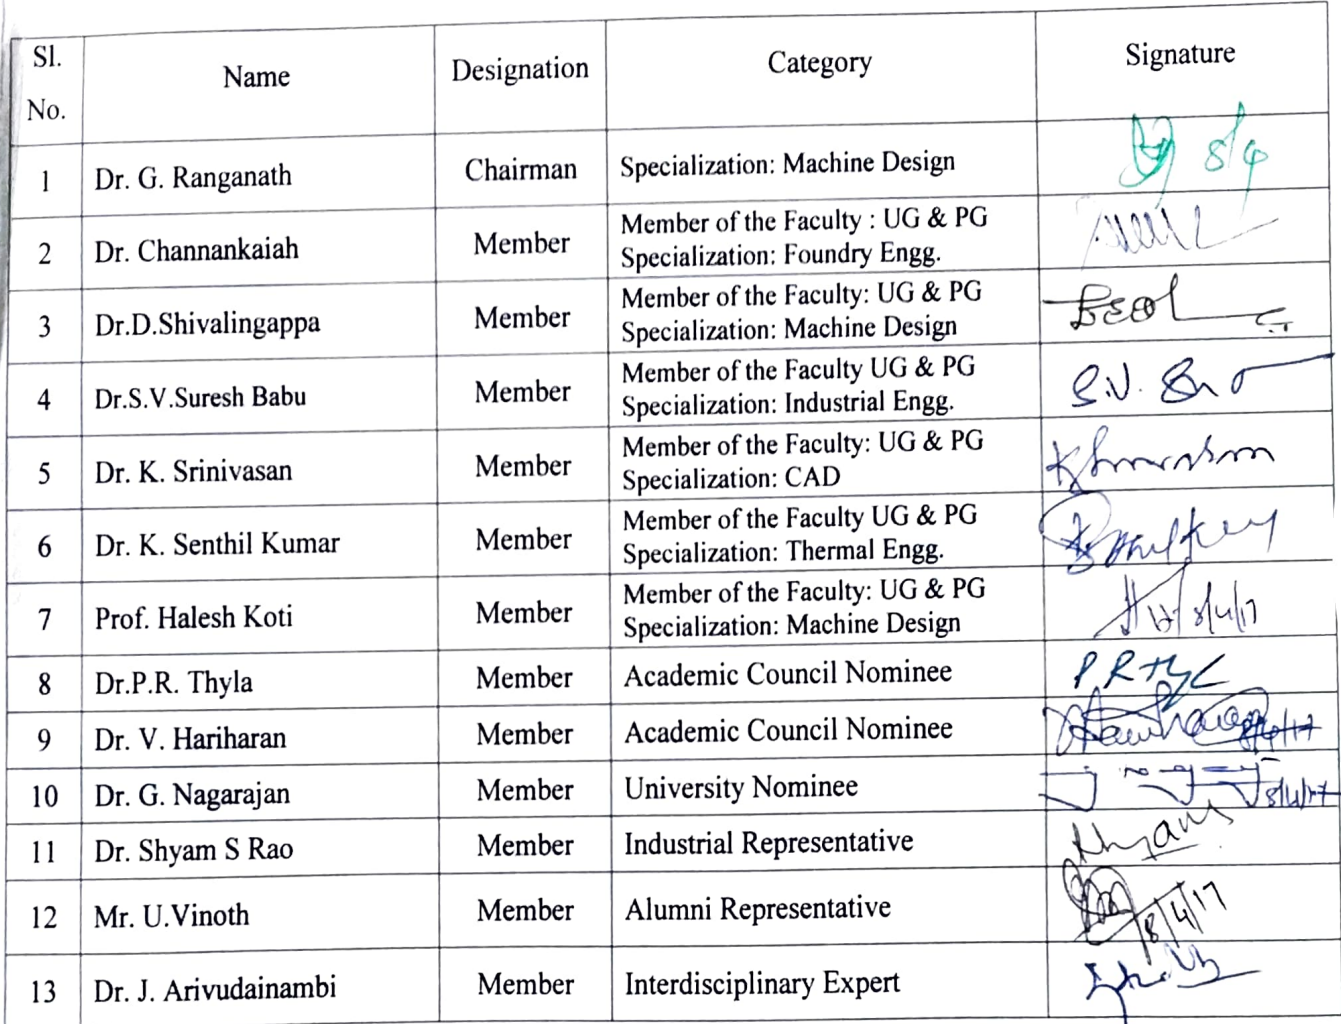 Sl. No. Name Designation Category Signature
1 Dr. G. Ranganath Chairman Specialization: Machine Design 8/4
2 Dr. Channankaiah Member Member of the Faculty : UG & PG
Specialization: Foundry Engg.
3 Dr.D.Shivalingappa Member Member of the Faculty: UG & PG
Specialization: Machine Design
4 Dr.S.V.Suresh Babu Member Member of the Faculty UG & PG
Specialization: Industrial Engg.
5 Dr. K. Srinivasan Member Member of the Faculty: UG & PG
Specialization: CAD
6 Dr. K. Senthil Kumar Member Member of the Faculty UG & PG
Specialization: Thermal Engg.
7 Prof. Halesh Koti Member Member of the Faculty: UG & PG
Specialization: Machine Design 8/4/17
8 Dr.P.R. Thyla Member Academic Council Nominee
9 Dr. V. Hariharan Member Academic Council Nominee 8/4/17
10 Dr. G. Nagarajan Member University Nominee 8/4/17
11 Dr. Shyam S Rao Member Industrial Representative
12 Mr. U.Vinoth Member Alumni Representative 8/4/17
13 Dr. J. Arivudainambi Member Interdisciplinary Expert